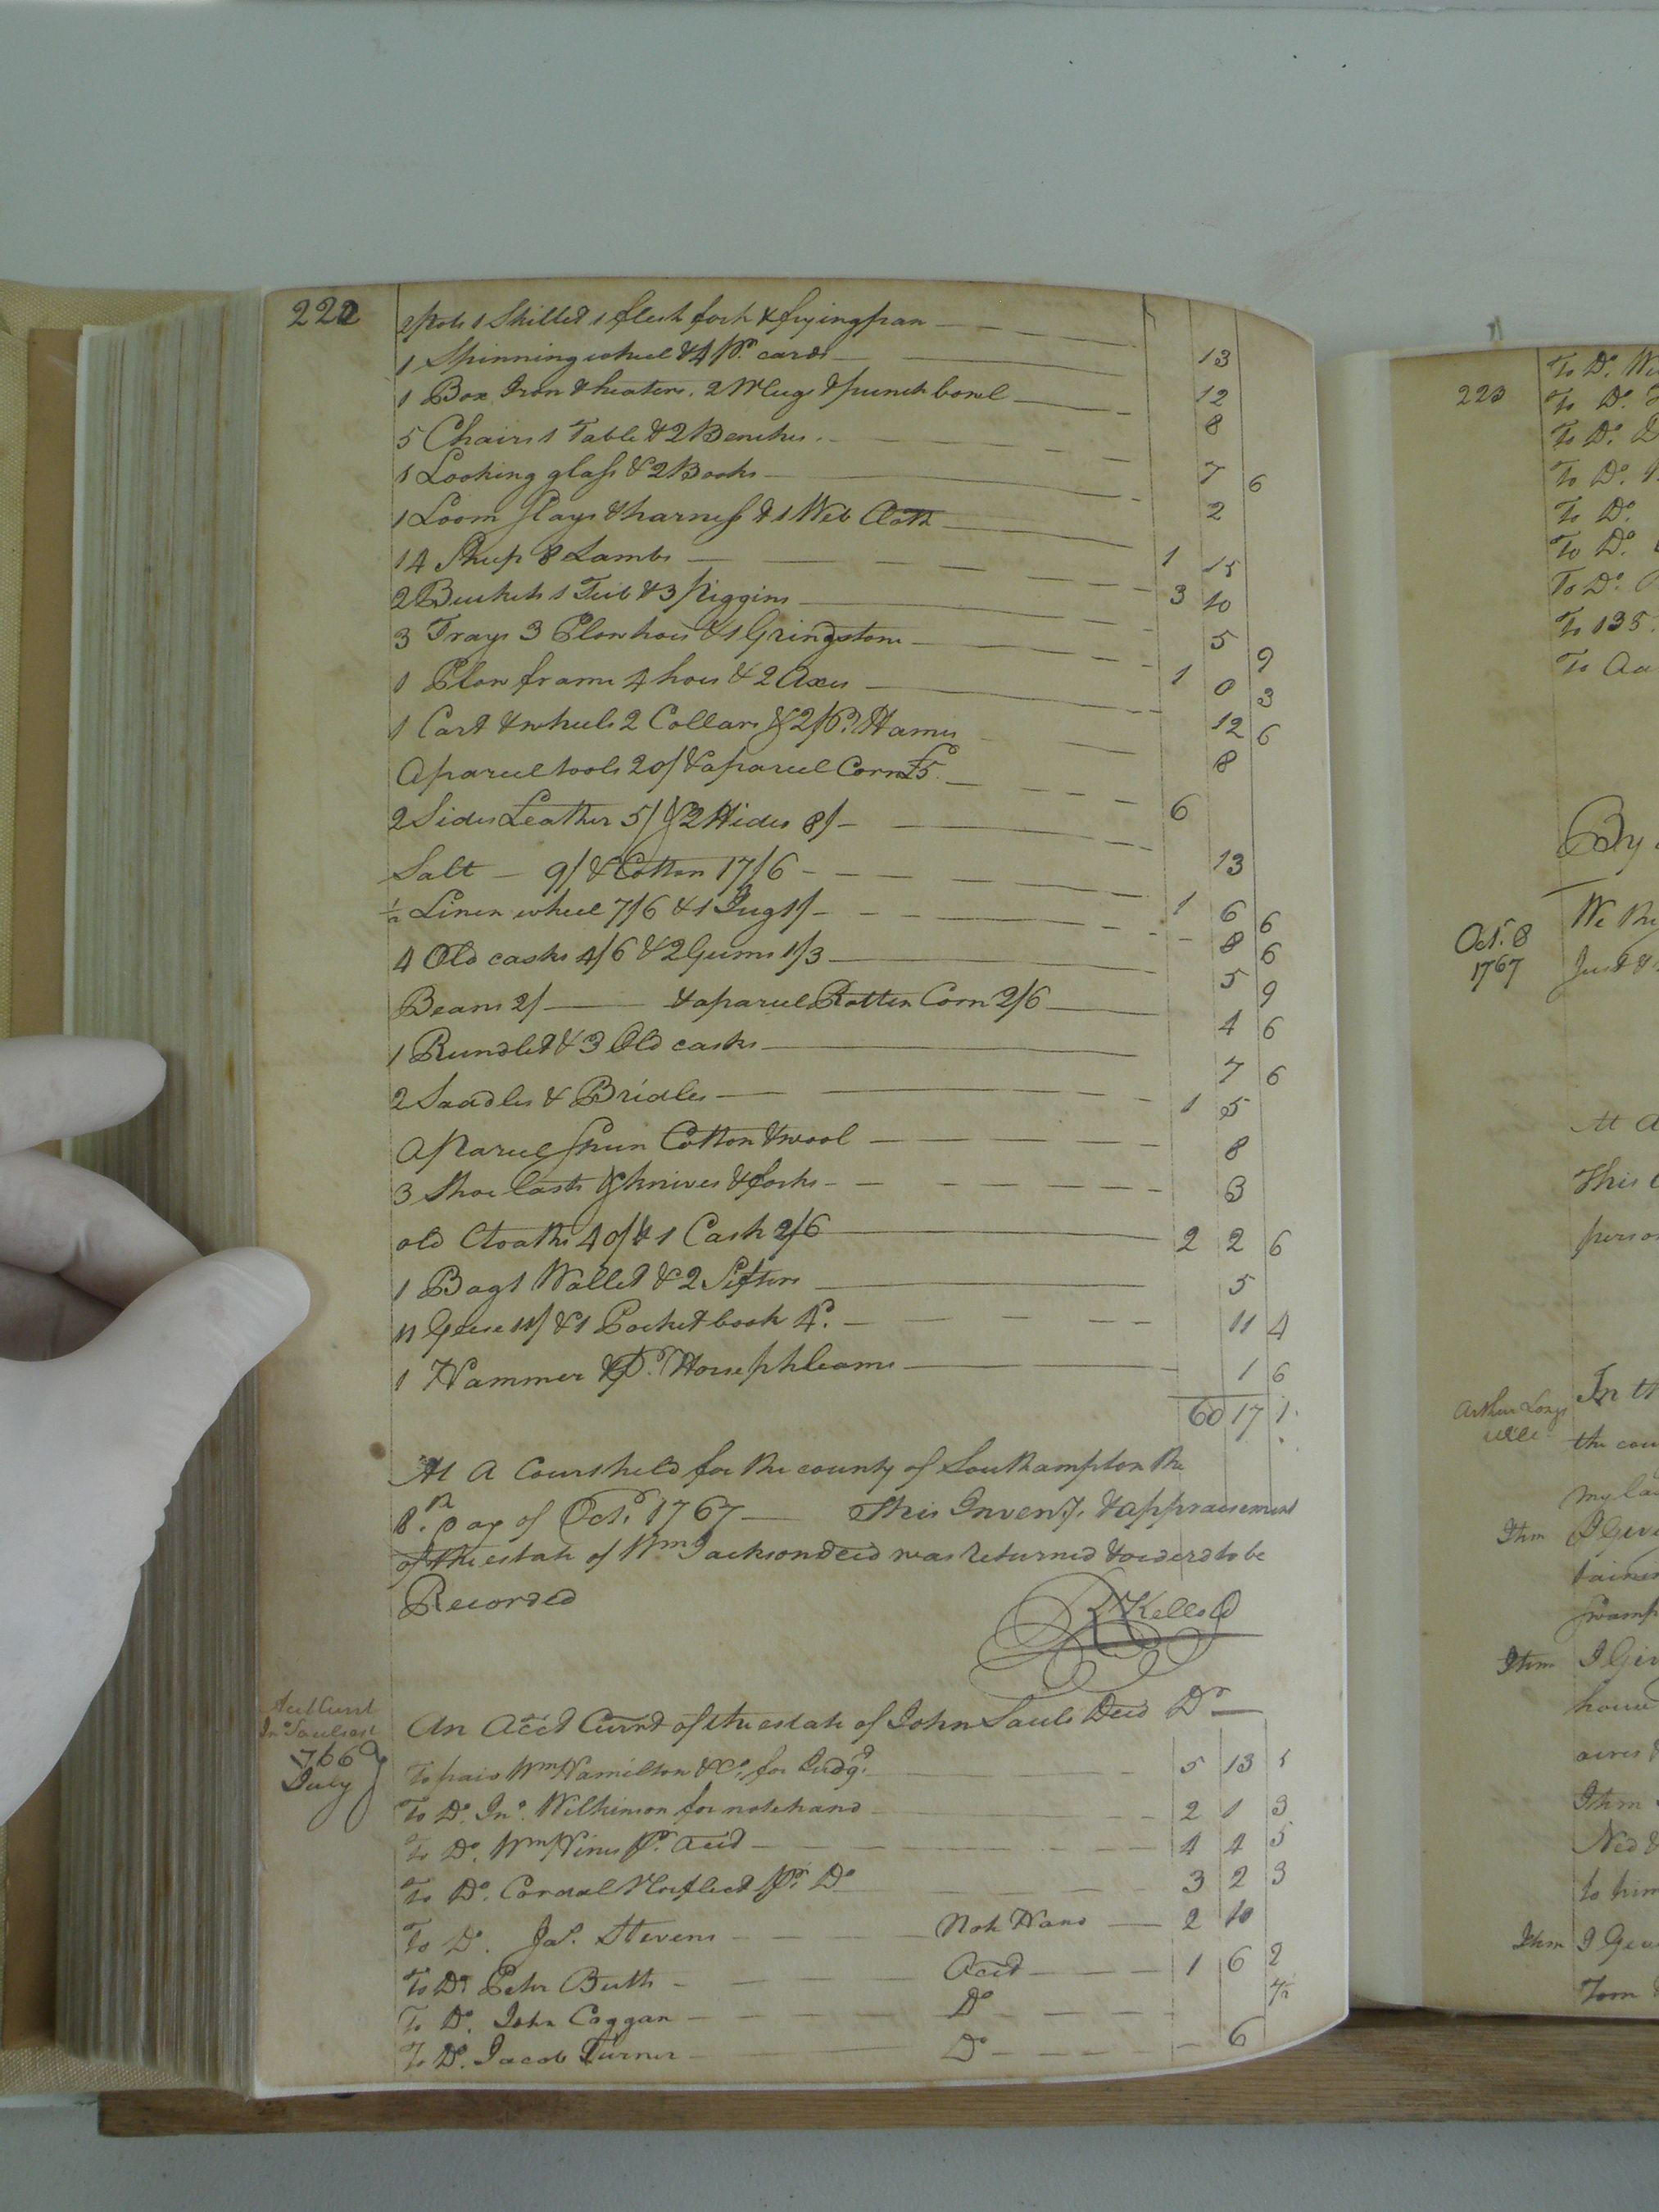 222
2 Pots 1 Skillet 1 flesh fork & frying pan
1 Spinning wheel & 4 Pr. cards 13
1 Box Iron & heaters. 2 Mugs & punch bowl 12
5 Chairs 1 Table & 2 Benches 8
1 Looking glass & 2 Books 7 6
1 Loom Slays & harness & 1 Web Cloth 2
14 Sheep 8 Lambs 1 15
2 Buckets 1 Tub & 3 Piggins 3 10
3 Trays 3 Plow hoes & 1 Gringstone 5 9
1 Plow frame 4 hoes & 2 Axes 1 0 3
1 Cart & wheels 2 Collars & 2 Pr. Hames 12 6
A parcel tools 20/ & a parcel Corn £5 8
2 Sides Leather 5/ & 2 Hides 8/ 6
Salt 9/ & Cotton 17/6 13
½ Linen wheel 7/6 & 1 Jug 1/ 1 6 6
4 Old casks 4/6 & 2 Gums 1/3 8 6
Beans 2/ & a parcel Rotten Corn 2/6 5 9
1 Rundlet & 3 Old casks 4 6
2 Saddles & Bridles 7 6
A Parcel Spun Cotton & wool 1 5
3 Shoe lasts & knives & forks 8
old Cloaths 40/ & 1 Cask 2/6 3
1 Bag 1 Wallet & 2 Sifters 2 2 6
11 Geese 11/ & 1 Pocket book 4d. 5
1 Hammer & Pr. Horse phleams 11 4
1 6
60 17 1
At A Court held for the county of Southampton the
8th. Day of Oct. 1767 This Inventy. & appraisement
of the estate of Wm Jackson decd was returned & orderd to be
Recorded
R Kello
Acct Curt
Jno Sauls est
1766
July
An Acct Currt of the estate of John Sauls Decd Dr
To paid Wm Hamilton &Co. for Judgt. 5 13 5
To Do. Jno. Wilkinson for note hand 2 1 3
To Do. Wm Hines Pr. Acct 4 4 5
To Do. Cordal Norfleet Pr. Do 3 2 3
To Do. Jas. Stevens Note Hand 2 10
To Do Peter Butts Acct 1 6 2
To Do. John Coggan Do 7½
To Do. Jacob Turner Do 6
223
To Do.
To Do.
To Do.
To Do.
To Do
To Do.
To Do.
To 135
To
By
Oct. 8
1767
We the
Just &
At a
This
person
Arthur Longs
will
In th
the cou
my la
Itm I Give
swamp
Itm I Giv
house
acres
Itm
Ned &
to him
Itm I Give
Tom